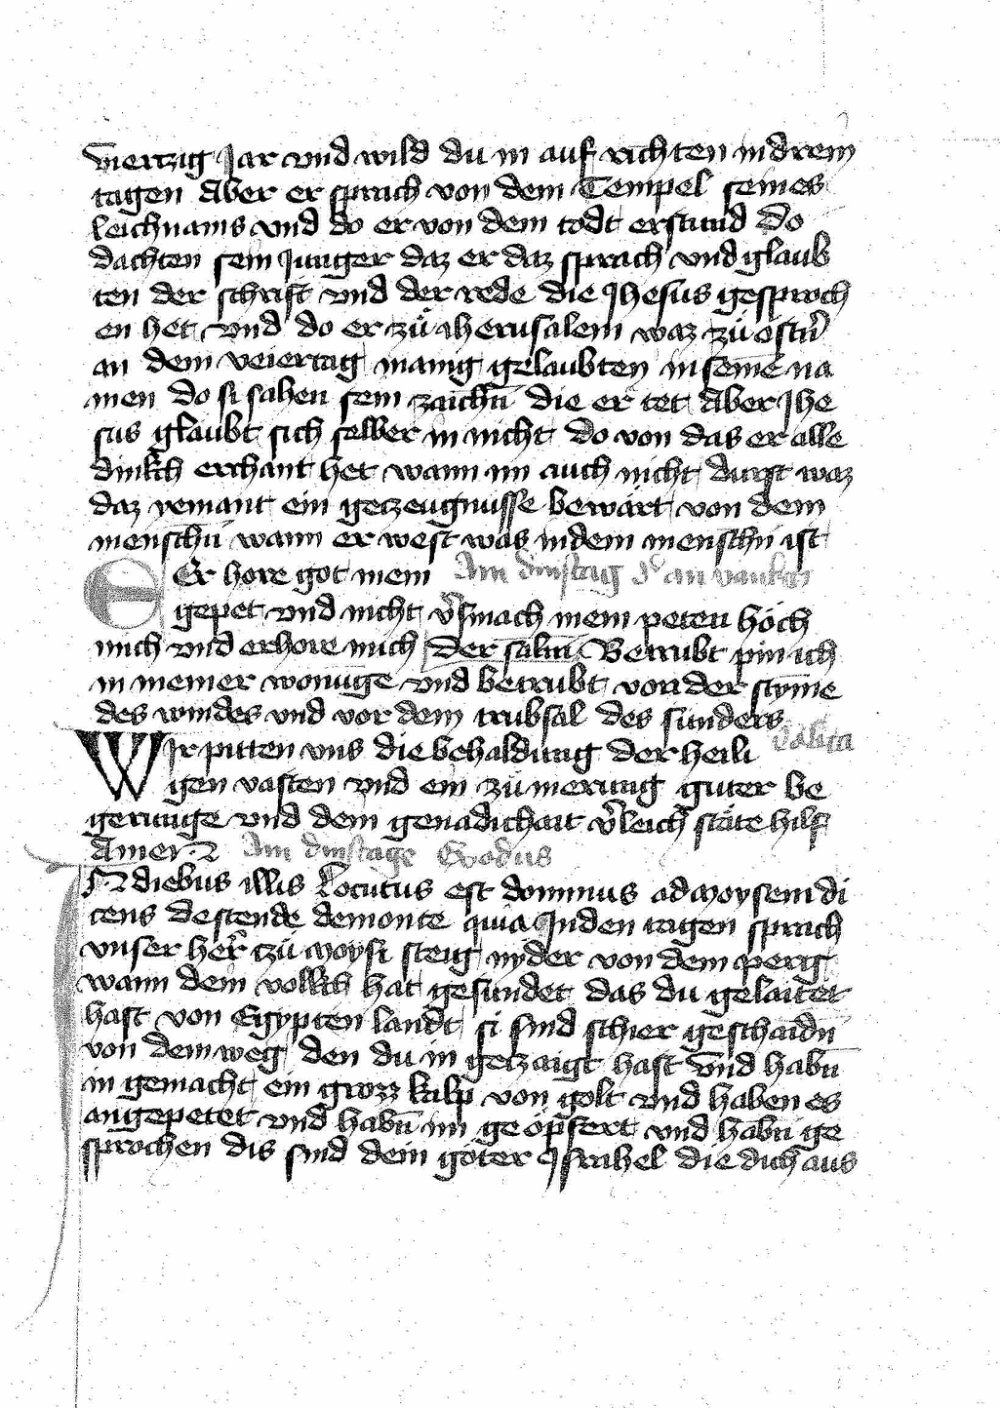 viertzig Jar vnd wild du in auf richten in drein
tagen Aber er sprach von dem Tempel seines
leichnams vnd do er von dem todt erstund do
dachten sein Junger daz er daz sprach vnd glaub
ten der schrift vnd der rede die Jhesus gesproch
en het vnd do er zů Jherusalem waz zů ostn̄
an dem veiertag manig gelaubten in seinē na
men do si sahen sein zaichn̄ die er tet Aber Jhe
sus glaubt sich selber in nicht do von das er alle
dinkch erchant het wann im auch nicht durft waz
daz yemant ein getzeugnusse bewärt von dem
menschn̄ wann er west was in dem menschn̄ ist
ER hore got mein Am dinstag
gepet vnd nicht v̄smach mein peten höch
mich vnd erhore mich Der salm̄ Betrubt pin ich
in meiner wonūge vnd betrubt von der stȳme
des windes vnd vor dem trubsal des sunders
WIr pitten vns die behaldung der heili Colltā
gen vasten vnd ein zů merung guter be
gerunge vnd dem genadichait v̄leich stäte hilf
Amen Am dinstage Exodus
IN diebus illis Locutus est dominus ad Moysem di
cens descende de monte quia In den tagen sprach
vnser her̄ tzů Moysi steig nyder von dem perig
wann dein vollkch hat gesundet das du gelaitet
hast von Egypten landt si sind schier geschaidn̄
von dem weg den du in getzaigt hast vnd habn̄
in gemacht ein grozz kalp von golt vnd haben es
angepetet vnd habn̄ im geöpfert vnd habn̄ ge
sprochen dis sind dein göter Jsrahel die dich aus